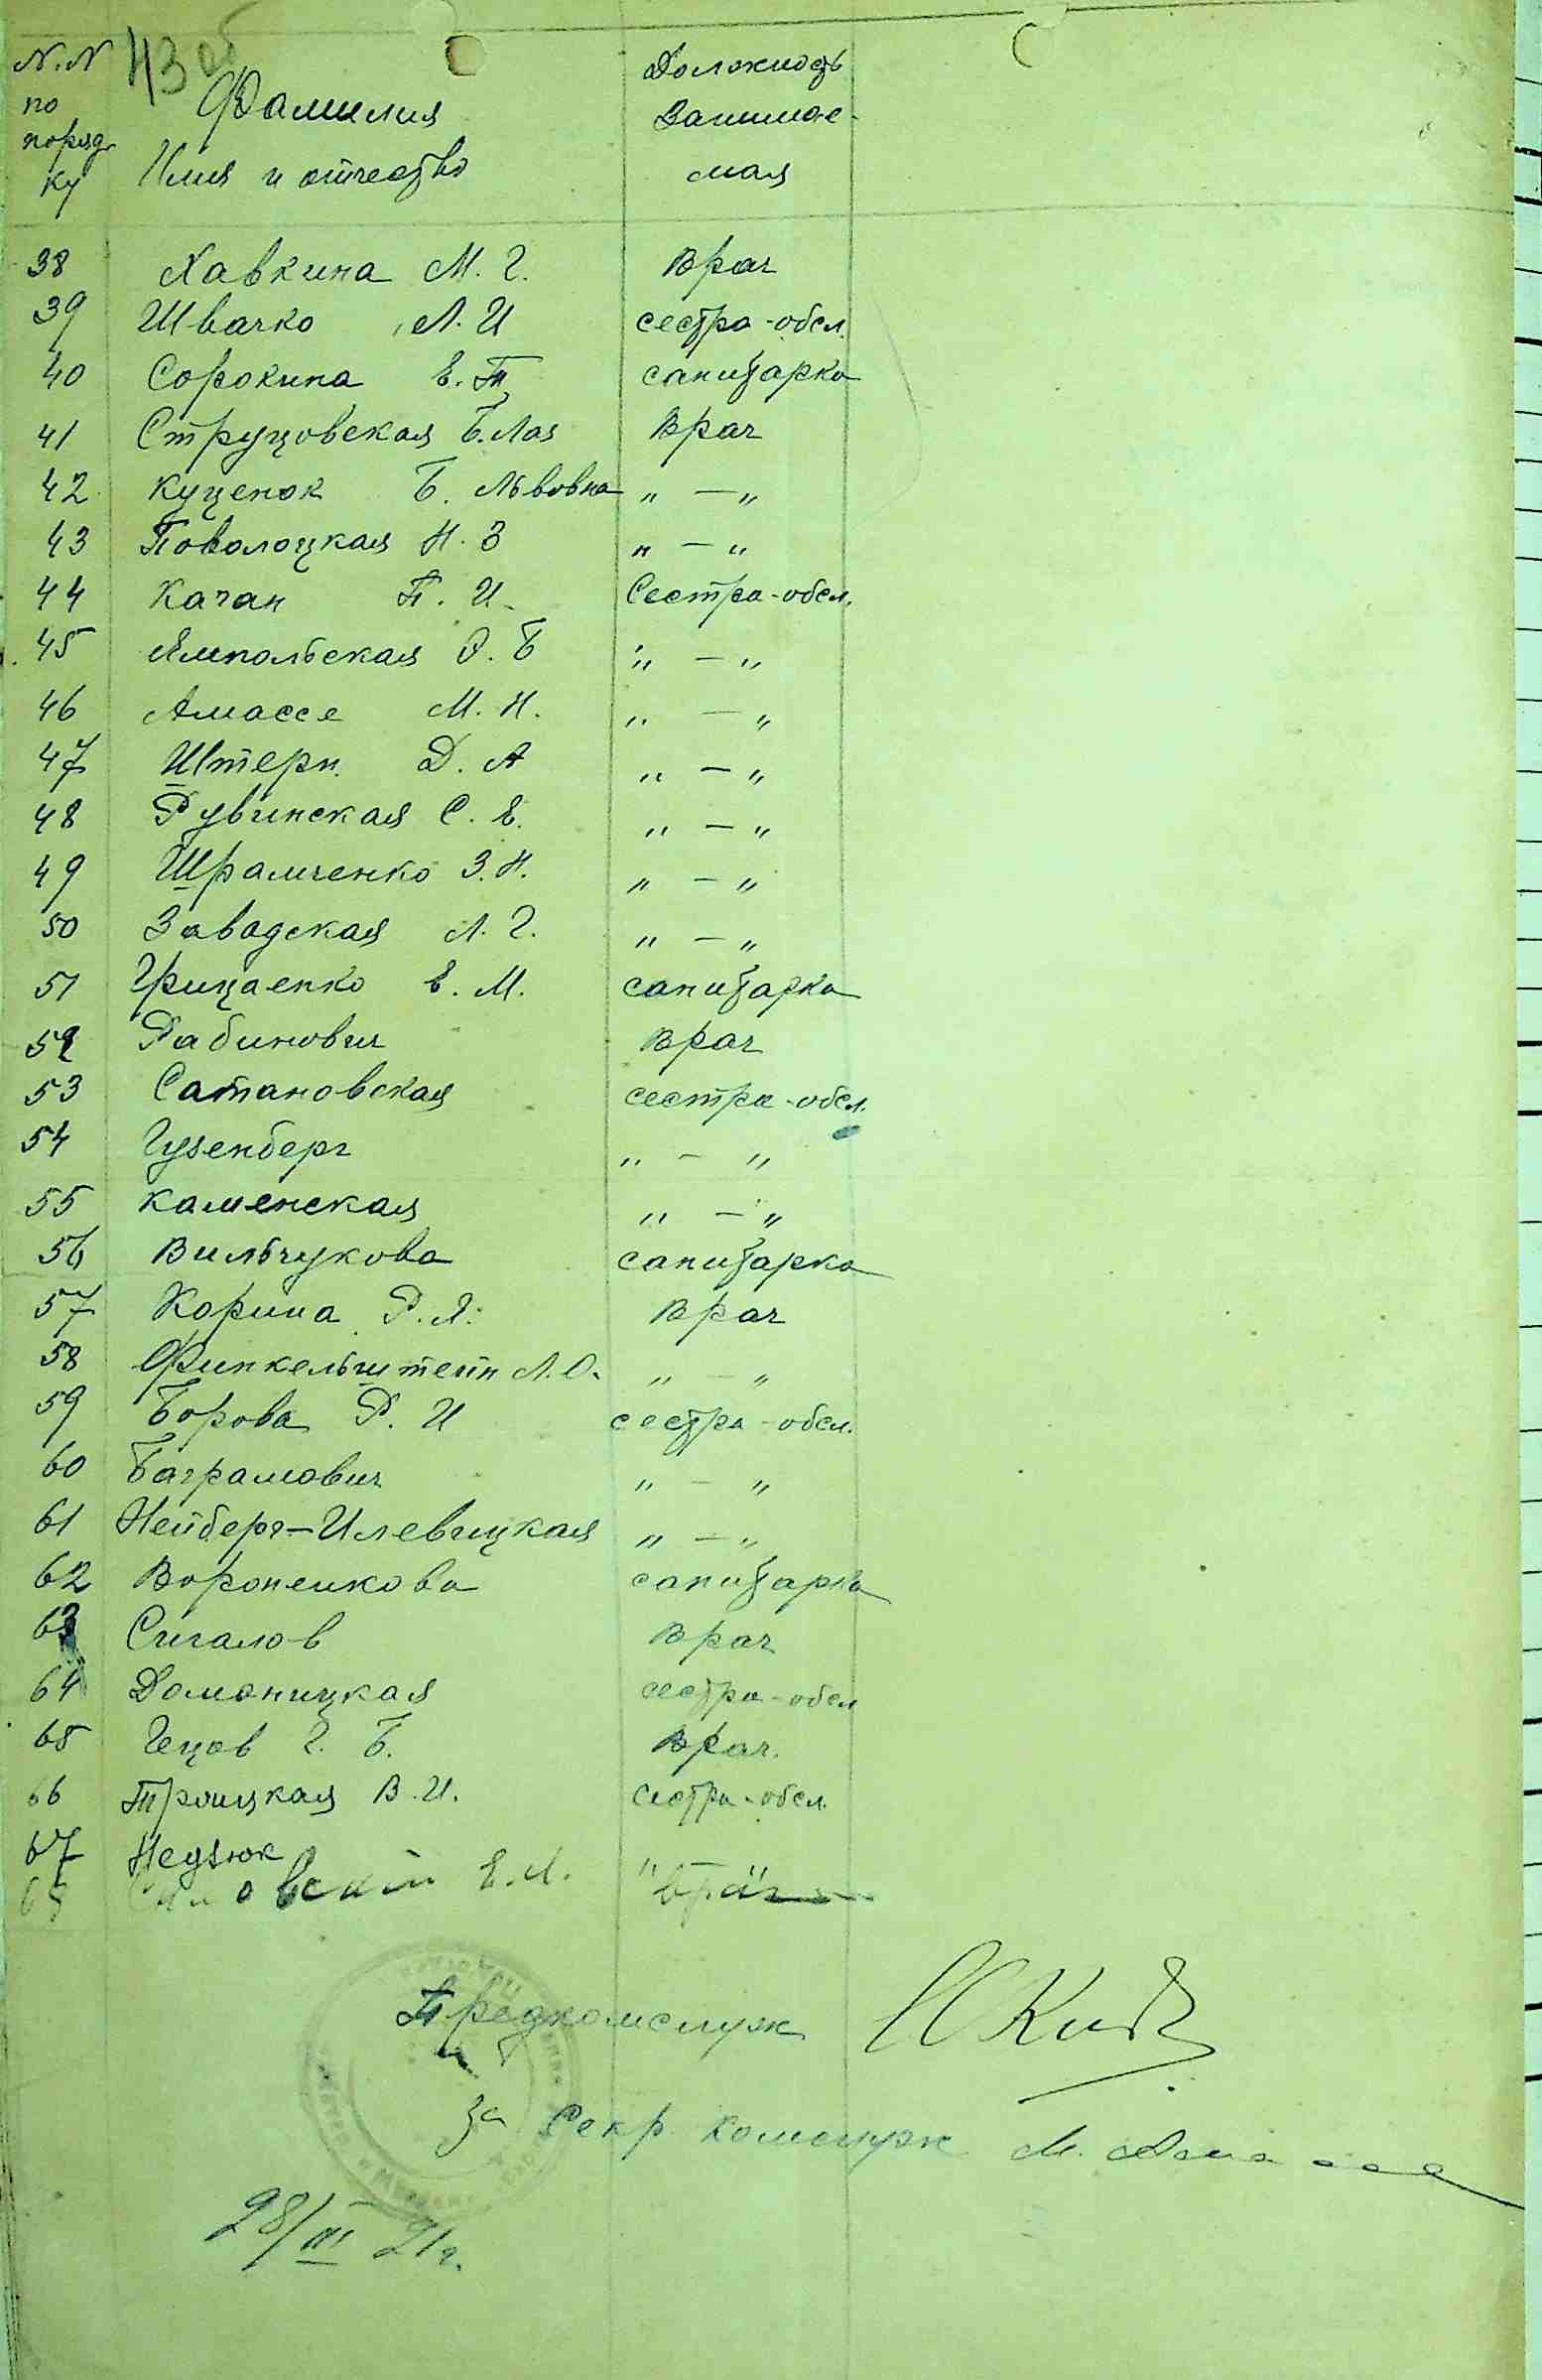 43 об
N.N по порядку Фамилия Имя и отчество Должность Занимаемая
38 Хавкина М. Г. Врач
39 Швачко Л. И сестра-обсл.
40 Сорокина Е. П санитарка
41 Струцовская Б. Лаз Врач
42 Куценок Б. Львовна " — "
43 Поволоцкая Н. З " — "
44 Качан П. И. Сестра-обсл.
45 Ямпольская Э. Б " — "
46 Амассе М. Н. " — "
47 Штерн. Д. А " — "
48 Рувинская С. Е. " — "
49 Шрамченко З. Н. " — "
50 Завадская Л. Г. " — "
51 Грицаенко Е. М. санитарка
52 Рабинович Врач
53 Сатановская сестра-обсл.
54 Гузенберг " — "
55 Каменская " — "
56 Вильчукова санитарка
57 Корина Р. Я. Врач
58 Финкельштейн Л. О. " — "
59 Борова Р. И сестра-обсл.
60 Баграмович " — "
61 Нейберг-Илевицкая " — "
62 Воропенкова санитарка
63 Сигалов Врач
64 Доманицкая сестра-обсл
65 Гецов Г. Б. Врач.
66 Троицкая В. И. сестра-обсл.
67 Недзюк " — "
68 Е. Л. Врач
Предкомслуж
за Секр. комслуж М.
28/III 21 г.